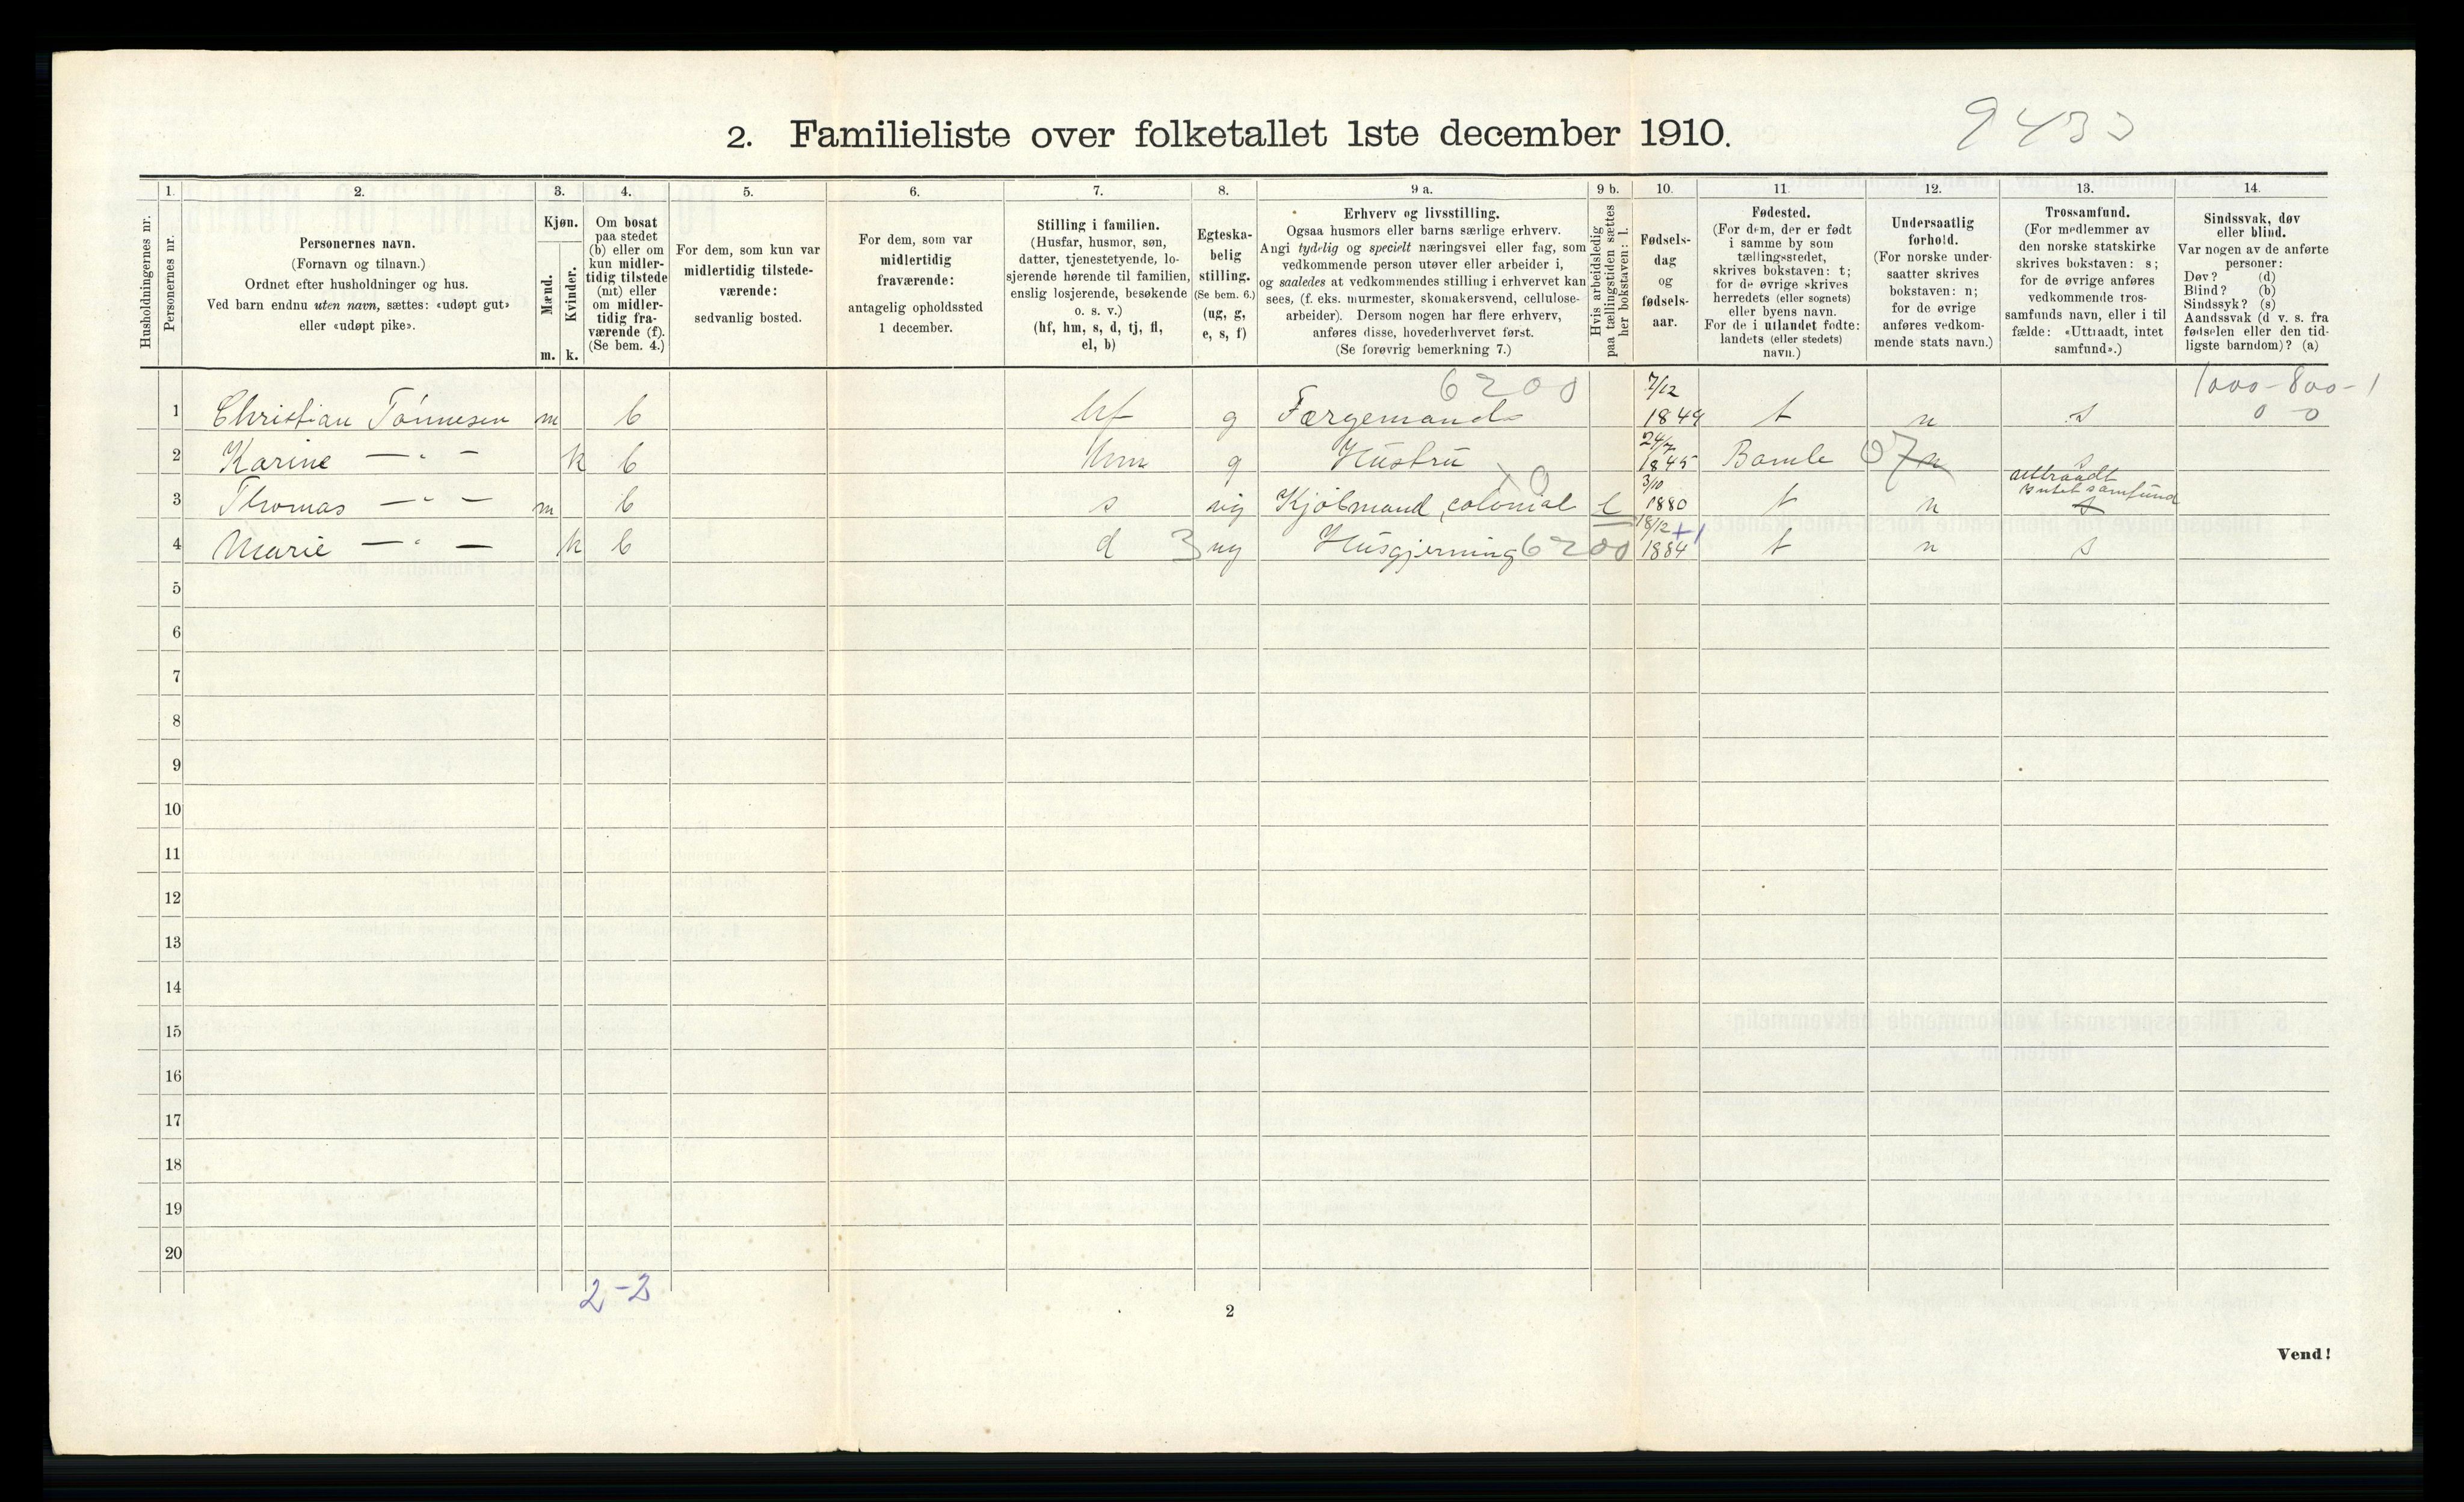 2. Familieliste over folketallet 1ste december 1910.
9433
Husholdningernes nr.
1.
Personernes nr.
2.
Personernes navn.
(Fornavn og tilnavn.)
Ordnet efter husholdninger og hus.
Ved barn endnu uten navn, sættes: «udøpt gut»
eller «udøpt pike».
3.
Kjøn.
Mænd.
Kvinder.
m. k.
4.
Om bosat
paa stedet
(b) eller om
kun midler-
tidig tilstede
(mt) eller
om midler-
tidig fra-
værende (f).
(Se bem. 4.)
5.
For dem, som kun var
midlertidig tilstede-
værende:
sedvanlig bosted.
6.
For dem, som var
midlertidig
fraværende:
antagelig opholdssted
1 december.
7.
Stilling i familien.
(Husfar, husmor, søn,
datter, tjenestetyende, lo-
sjerende hørende til familien,
enslig losjerende, besøkende
o. s. v.)
(hf, hm, s, d, tj, fl,
el, b)
8.
Egteska-
belig
stilling.
(Se bem. 6.)
(ug, g,
e, s, f)
9 a.
Erhverv og livsstilling.
Ogsaa husmors eller barns særlige erhverv.
Angi tydelig og specielt næringsvei eller fag, som
vedkommende person utøver eller arbeider i,
og saaledes at vedkommendes stilling i erhvervet kan
sees, (f. eks. murmester, skomakersvend, cellulose-
arbeider). Dersom nogen har flere erhverv,
anføres disse, hovederhvervet først.
(Se forøvrig bemerkning 7.)
9 b.
Hvis arbeidsledig
paa tællingstiden sættes
her bokstaven: l.
10.
Fødsels-
dag
og
fødsels-
aar.
11.
Fødested.
(For dem, der er født
i samme by som
tællingsstedet,
skrives bokstaven: t;
for de øvrige skrives
herredets (eller sognets)
eller byens navn.
For de i utlandet fødte:
landets (eller stedets)
navn.)
12.
Undersaatlig
forhold.
(For norske under-
saatter skrives
bokstaven: n;
for de øvrige
anføres vedkom-
mende stats navn.)
13.
Trossamfund.
(For medlemmer av
den norske statskirke
skrives bokstaven: s;
for de øvrige anføres
vedkommende tros-
samfunds navn, eller i til
fælde: «Uttraadt, intet
samfund».)
14.
Sindssvak, døv
eller blind.
Var nogen av de anførte
personer:
Døv? (d)
Blind? (b)
Sindssyk? (s)
Aandssvak (d v. s. fra
fødselen eller den tid-
ligste barndom)? (a)
6200 7/12 1000-800-1
1 Christian Tönnesen m b hf g Færgemand 1849 t n s 0 0
24/7
2 Karine — " — k b hm g Hustru 1845 Bamle 07 n s
3/10 uttraadt
intet samfund
3 Thomas — " — m b s ug Kjöbmand, colonial l 1880 t n s
18/12 +1
4 Marie — " — k b d 3 ug Husgjerning 6200 1884 t n s
5
6
7
8
9
10
11
12
13
14
15
16
17
18
19
20
2-2
2
Vend!